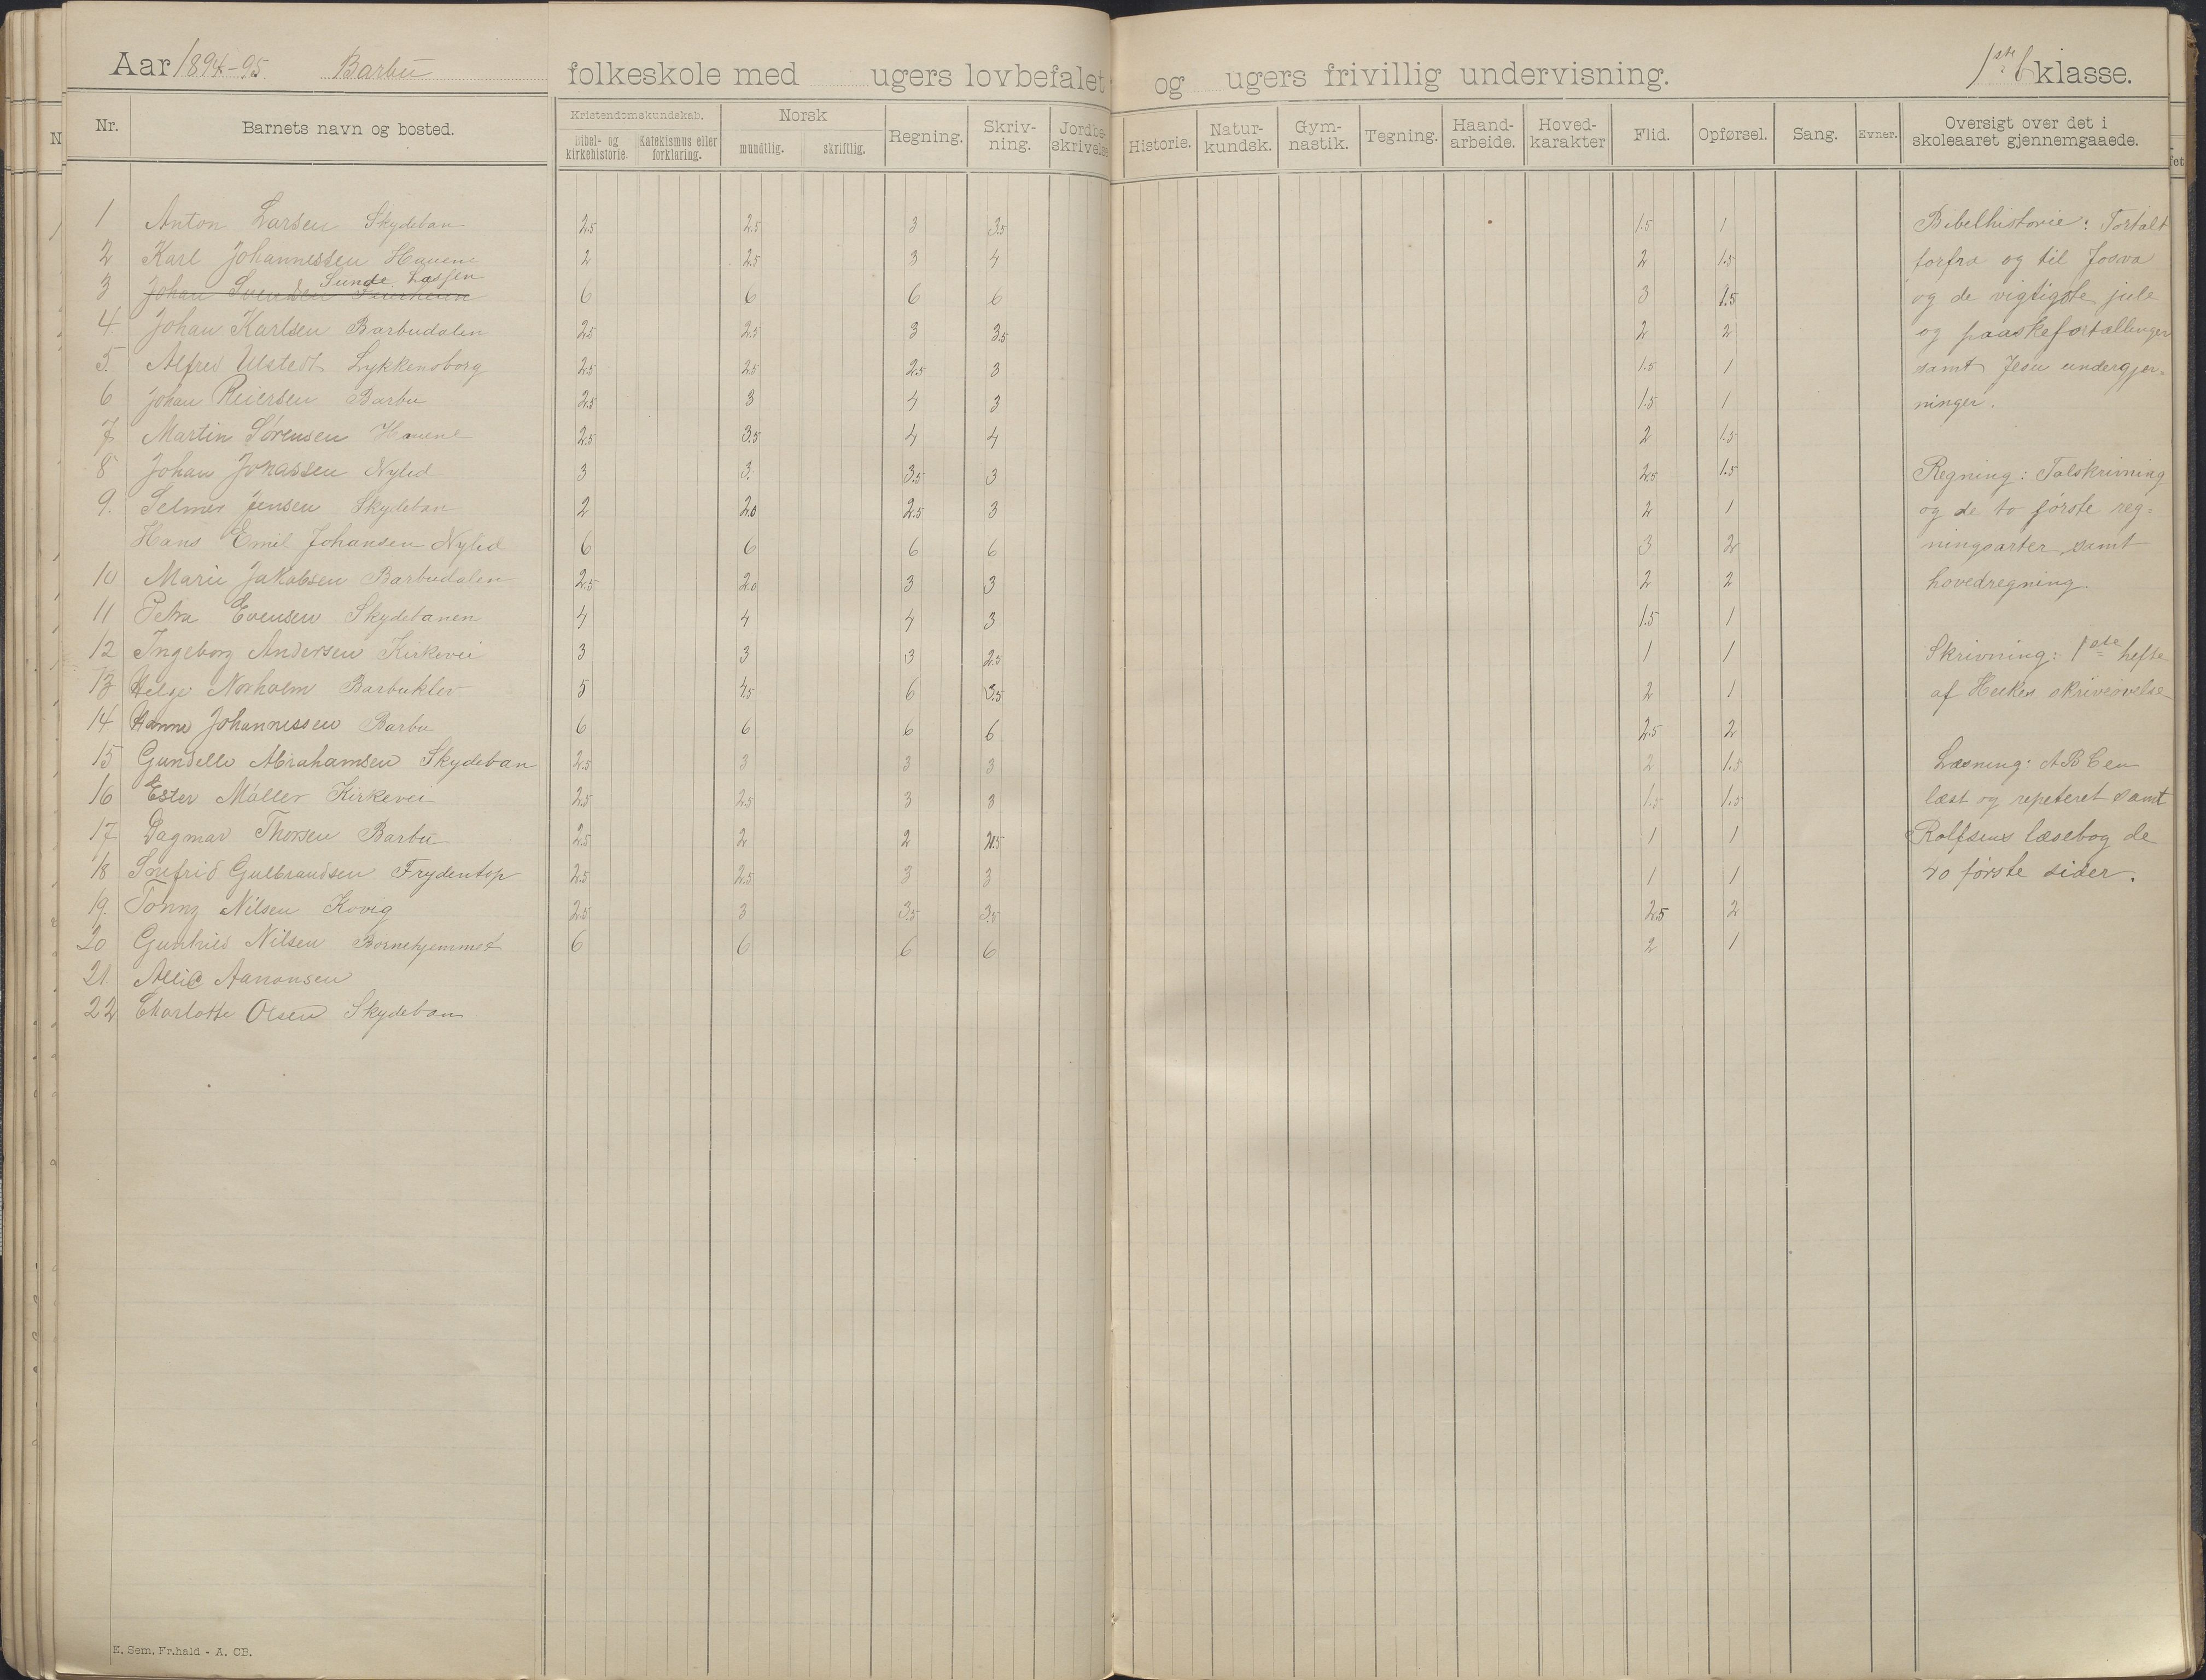 Aar 1894-95 Barbu folkeskole med ugers lovbefalet og ugers frivillig undervisning. 1ste b klasse.
Nr. Barnets navn og bosted. Kristendomskundskab. Bibel- og kirkehistorie. Katekismus eller forklaring. Norsk mundtlig. skriftlig. Regning. Skriv-ning. Jordbe-skrivelse Historie. Natur-kundsk. Gym-nastik. Tegning. Haand-arbeide. Hoved-karakter Flid. Opførsel. Sang. Evner. Oversigt over det i skoleaaret gjennemgaaede.
1 Anton Larsen Skydeban 2.5 2.5 3 3.5 1.5 1 Bibelhistorie: Fortalt
2 Karl Johannessen Havene 2 2.5 3 4 2 1.5 forfra og til Josva
Sunde Lassen
3 Johan Svendsen 6 6 6 6 3 1.5 og de vigtigste jule
4. Johan Karlsen Barbudalen 2.5 2.5 3 3.5 2 2 og paaskefortællinger
5. Alfred Ulstedt Lykkensborg 2.5 2.5 2.5 3 1.5 1 samt Jesu undergjer-
6 Johan Reiersen Barbu 2.5 3 4 3 1.5 1 ninger.
7 Martin Sørensen Havene 2.5 3.5 4 4 2 1.5
8 Johan Jonassen Nyled 3 3. 3.5 3 2.5 1.5 Regning: Talskrivning
9. Selmer Jensen Skydeban 2 2.0 2.5 3 2 1 og de to første reg-
Hans Emil Johansen Nyled 6 6 6 6 3 2 ningsarter samt
10 Marie Jakobsen Barbudalen 2.5 2.0 3 3 2 2 hovedregning.
11 Petra Evensen Skydebanen 4 4 4 3 1.5 1
12 Ingeborg Andersen Kirkevei 3 3 3 2.5 1 1 Skrivning: 1ste hefte
13 Helge Norholm Barbuklev 5 4.5 6 3.5 2 1 af skriveøvelse
14 Hanna Johannessen Barbu 6 6 6 6 2.5 2
15 Gundelle Abrahamsen Skydeban 2.5 3 3 3 2 1.5 Læsning: ABCen
16 Ester Møller Kirkevei 2.5 2.5 3 3 1.5 1.5 læst og repeteret samt
17 Dagmar Thorsen Barbu 2.5 2 2 2.5 1 1 Rolfsens læsebog de
18 Gulbrandsen Frydentop 2.5 2.5 3 3 1 1 40 første sider.
19. Tonny Nilsen Kovig 2.5 3 3.5 3.5 2.5 2
20 Gunhild Nilsen Børnehjemmet 6 6 6 6 2 1
21 Allie Aanonsen
22 Charlotte Olsen Skydeban
E. Sem, Fr.hald - A. CB.